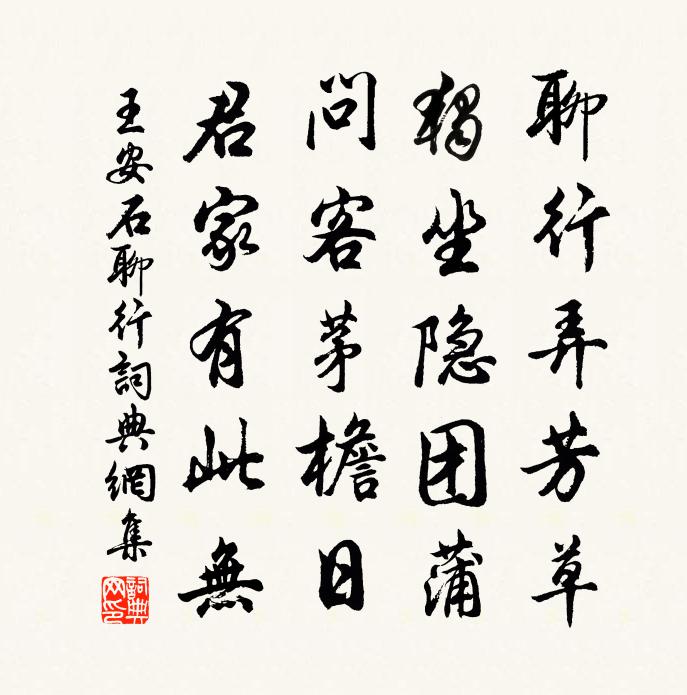 聊行弄芳草
獨坐隐团蒲
問客茅檐日
君家有此無
王安石聊行詞典網集
詞典網印